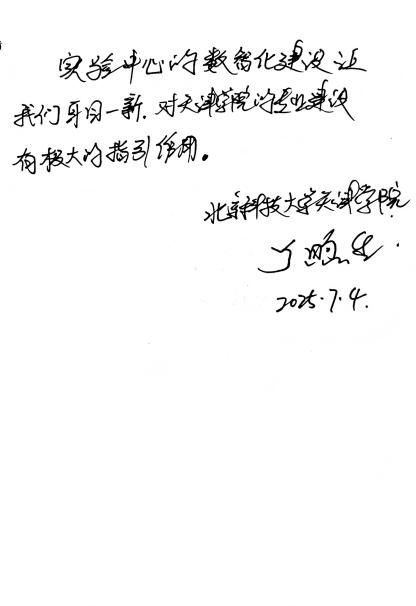 实验中心的数智化建设让
我们耳目一新。对天津学院的专业建设
有极大的指引作用。
北京科技大学天津学院
2025.7.4.